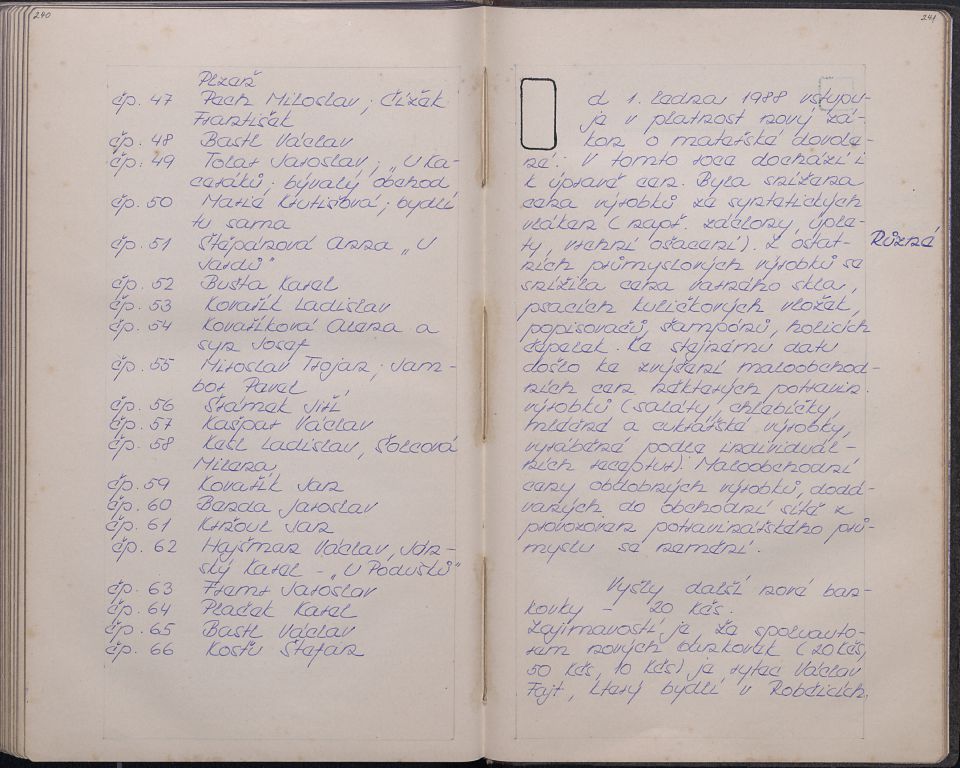 240
Plzař
čp. 47 Pech Miloslav; Čížek
František
čp. 48 Bastl Václav
čp. 49 Tolar Jaroslav; „U Ka-
ceráků; bývalý obchod
čp. 50 Marie Krutišová; bydlí
tu sama
čp. 51 Štěpánová Anna „U
Jardů"
čp. 52 Bušta Karel
čp. 53 Kovařík Ladislav
čp. 54 Kovaříková Alena a
syn Josef
čp. 55 Miroslav Trojan; Jam-
bor Pavel
čp. 56 Šrámek Jiří
čp. 57 Kašpar Václav
čp. 58 Kešl Ladislav, Šolcová
Milena
čp. 59 Kovařík Jan
čp. 60 Benda Jaroslav
čp. 61 Kržoul Jan
čp. 62 Hajšman Václav, Jdr-
ský Karel - „U Podušků"
čp. 63 Framr Jaroslav
čp. 64 Plaček Karel
čp. 65 Bastl Václav
čp. 66 Košťu Štefan
241
d 1. ledna 1988 vstupu-
je v platnost nový zá-
kon o mateřské dovole-
né. V tomto roce dochází i
k úpravě cen. Byla snížena
cena výrobků ze syntetických
vláken (např. záclony, úple-
ty, vrchní ošacení). Z ostat-
ních průmyslových výrobků se
snížila cena varného skla,
psacích kuličkových vložek,
popisovačů, šampónů, holicích
čepelek. Ke stejnému datu
došlo ke zvýšení maloobchod-
ních cen některých potravin.
výrobků (saláty, chlebíčky,
mléčné a cukrářské výrobky,
vyráběné podle individuál-
ních receptur). Maloobchodní
ceny obdobných výrobků, dodá-
vaných do obchodní sítě z
provozoven potravinářského prů-
myslu se nemění.
Různé
Vyšly další nové ban-
kovky - 20 Kčs.
Zajímavostí je že spoluauto-
rem nových bankovek (20 Kčs,
50 Kčs, 10 Kčs) je rytec Václav
Fajt, který bydlí v Robčicích.